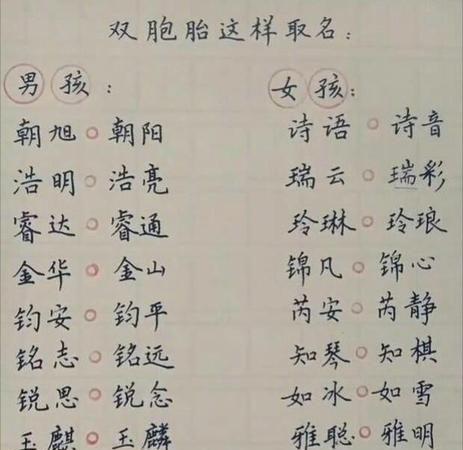 双胞胎这样取名：
男孩： 女孩：
朝旭○朝阳 诗语○诗音
浩明○浩亮 瑞云○瑞彩
睿达○睿通 玲琳○玲琅
金华○金山 锦凡○锦心
钧安○钧平 芮安○芮静
铭志○铭远 知琴○知棋
锐思○锐念 如冰○如雪
玉麒○玉麟 雅聪○雅明